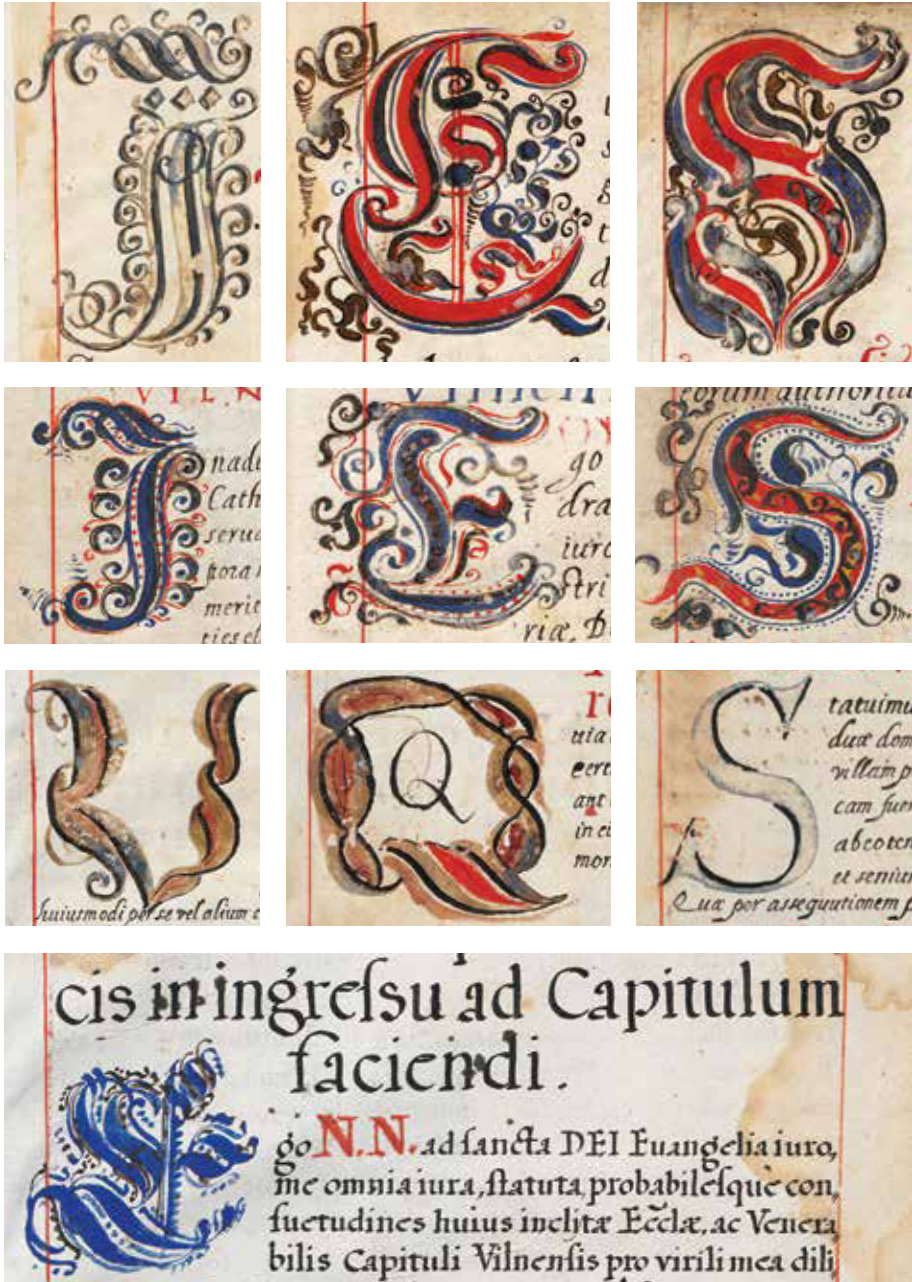 J
E
S
VILN
J
nadu
Cath
serua
tora
merit
ties el
E
go
dra
iuro
ſtri
riæ, D
orum authorita
S
V
huiusmodi per se vel alium c
Q
Q
uia
cert
ant
in ei
mor
S
tatuimu
duæ dom
villam p
cam fuer
ab eo ten
et seniu
Quæ per asseguutionem p
cis in ingreſsu ad Capitulum
faciendi.
E
go N.N. ad ſancta DEI Euangelia iuro,
me omnia iura, ſtatuta, probabileſque con,
ſuetudines huius inclitæ Eccłæ, ac Venera
bilis Capituli Vilnenſis pro virili mea dili